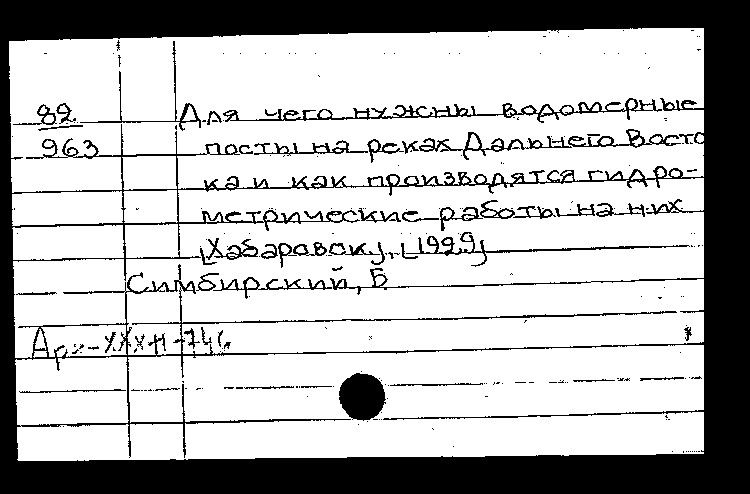 82
963
Для чего нужны водомерные
посты на реках Дальнего Восто
ка и как производятся гидро-
метрические работы на них
[Хабаровск], [1929]
Симбирский, Б